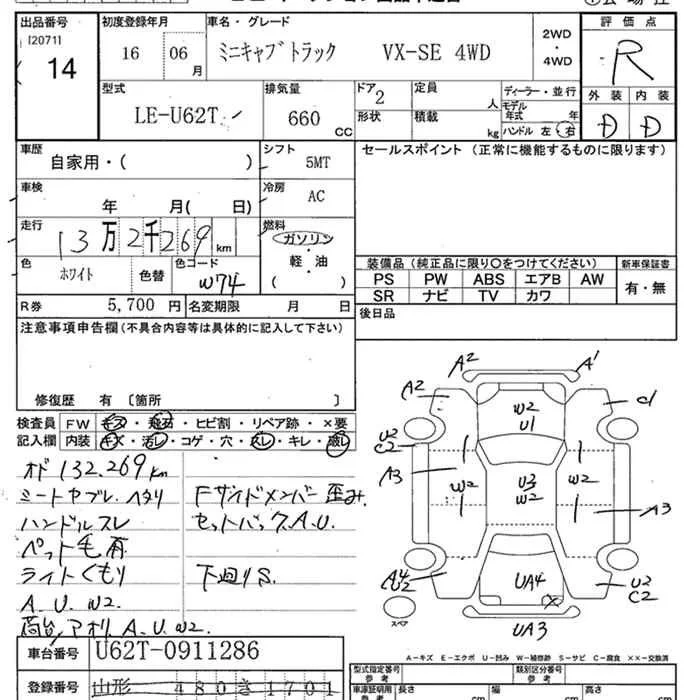 出品番号 初度登録年月 車名・グレード 評価点
[2071] 16 06 月 ミニキャブ トラック VX-SE 4WD 2WD・4WD R
14
型式 排気量 ドア 2 定員 人 ディーラー・並行 外装 内装
LE-U62T 660 CC 形状 積載 kg モデル年式 年 D D
ハンドル 左・右
車歴 自家用・( ) シフト 5MT セールスポイント (正常に機能するものに限ります)
車検 年 月( 日) 冷房 AC
走行 13万2千269 km 燃料 ガソリン・軽・油 ( )
色 ホワイト 色替 色コード W74
装備品 (純正品に限り○をつけてください) 新車保証書
PS PW ABS エアB AW 有・無
SR ナビ TV カワ
R券 5,700 円 名変期限 月 日 後日品
注意事項申告欄 (不具合内容等は具体的に記入して下さい)
修復歴 有 〔箇所 〕
検査員 FW キズ・飛石・ヒビ割・リペア跡・×要
記入欄 内装 キズ・汚レ・コゲ・穴・スレ・キレ・破レ
オド 132,269km
シートヤブレ、ヘタリ Fサイドメンバー歪み、
ハンドルスレ セットバック、A、U、
ペット毛有
ライトくもり 下廻りS、
A、U、W2、
荷台/アオリ A、U、W2、
A2 A1
A2 C1
W2
U1
U2
C2
A3 W2 U3
W2 W2 A3
A4
U2 UA4 U2
C2
スペア UA3
A-キズ E-エクボ U-凹み W-補修跡 S-サビ C-腐食 ××-交換済
車台番号 U62T-0911286
型式指定番号 参考 類別区分番号 参考
登録番号 山形 480き1701
車庫証明用 参考 長さ cm 幅 cm 高さ cm